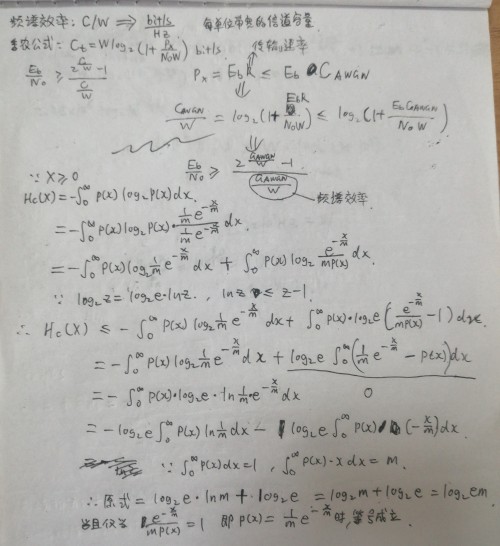 频谱效率: C/W ⟹ bit/s / Hz 每单位带宽的信道容量
香农公式: C_t = W log₂(1 + Pₓ/(N₀W)) bit/s 传输速率
E_b/N₀ ≥ (2^(C/W) - 1)/(C/W) Pₓ = E_b R ≤ E_b C_AWGN
C_AWGN/W = log₂(1 + E_b R/(N₀W)) ≤ log₂(1 + E_b C_AWGN/(N₀W))
∵ X ≥ 0 E_b/N₀ ≥ (2^(C_AWGN/W) - 1)/(C_AWGN/W) 频谱效率
Hc(X) = -∫₀^∞ p(x) log₂ p(x) dx.
= -∫₀^∞ p(x) log₂ p(x) · (1/m e^(-x/m))/(1/m e^(-x/m)) dx.
= -∫₀^∞ p(x) log₂ 1/m e^(-x/m) dx + ∫₀^∞ p(x) log₂ e^(-x/m)/(m p(x)) dx.
∵ log₂z = log₂e · lnz. , lnz ≤ z-1.
∴ Hc(X) ≤ -∫₀^∞ p(x) log₂ 1/m e^(-x/m) dx + ∫₀^∞ p(x) · log₂e (e^(-x/m)/(m p(x)) - 1) dx.
= -∫₀^∞ p(x) log₂ 1/m e^(-x/m) dx + log₂e ∫₀^∞ (1/m e^(-x/m) - p(x)) dx
= -∫₀^∞ p(x) · log₂e · ln 1/m · e^(-x/m) dx 0
= -log₂e ∫₀^∞ p(x) ln 1/m dx - log₂e ∫₀^∞ p(x) (-x/m) dx.
∵ ∫₀^∞ p(x) dx = 1, ∫₀^∞ p(x)·x dx = m.
∴ 原式 = log₂e · ln m + log₂e = log₂m + log₂e = log₂em
当且仅当 e^(-x/m)/(m p(x)) = 1 即 p(x) = 1/m e^(-x/m) 时, 等号成立.